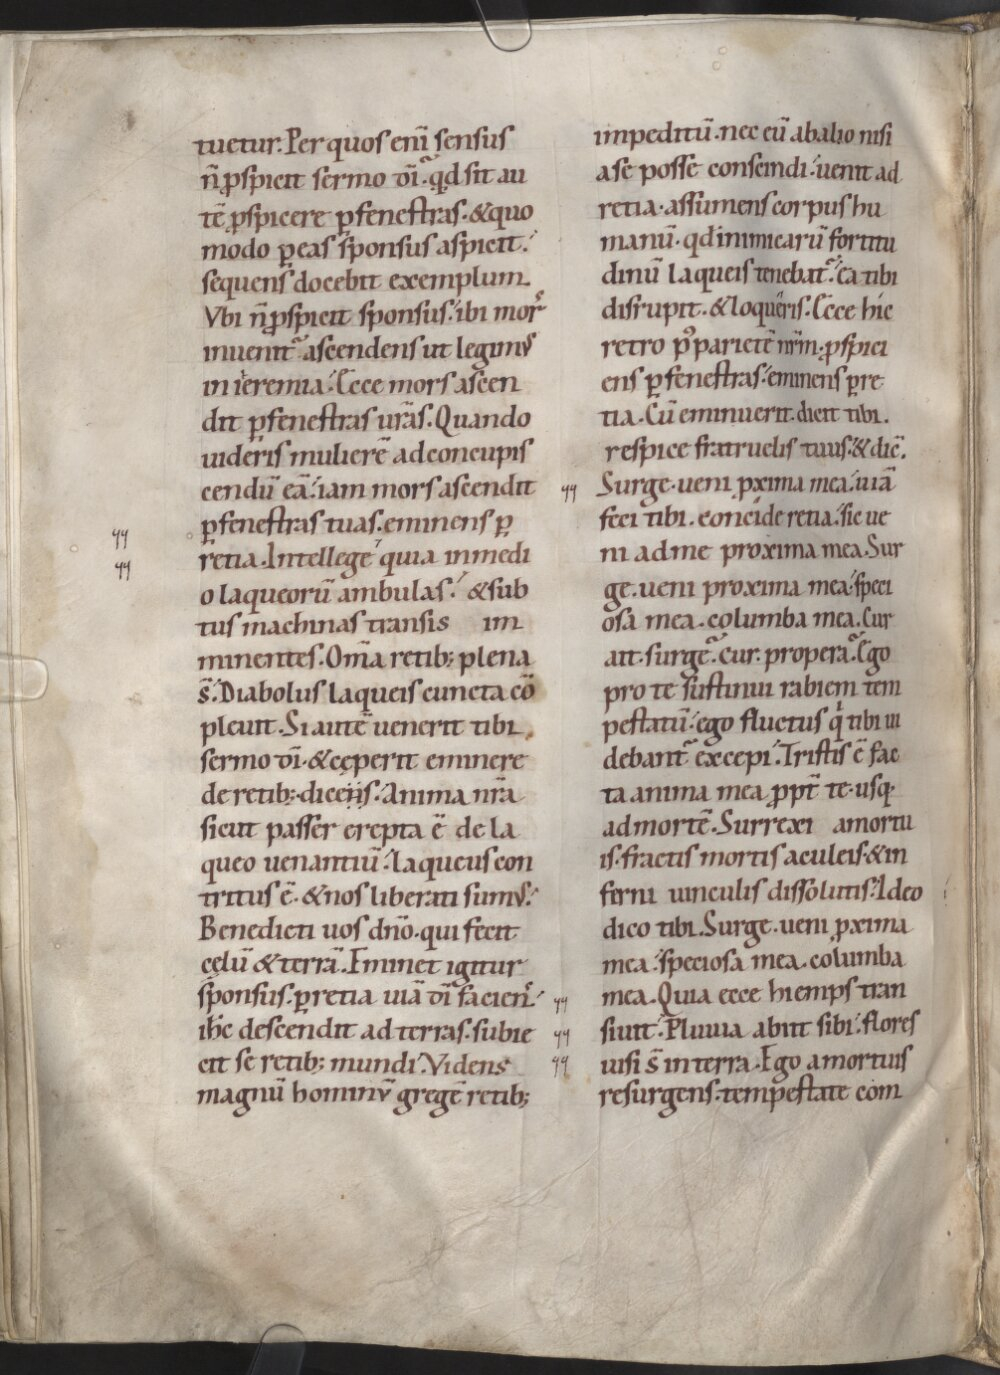 tuetur. Per quos eni᷈ sensus
n̄ ꝑspicit sermo d̄i. qd̄ sit au
tē ꝑspicere ꝑ fenestras. & quo
modo ꝑ eas sponsus aspicit.
sequens docebit exemplum.
Vbi n̄ ꝑspicit sponsus. ibi mor
inuenit᷑ ascendens ut legimus
in ieremia. Ecce mors ascen
dit ꝑ fenestras urās. Quando
uideris mulierē ad concupis
cendū eā. iam mors ascendit
ꝑ fenestras tuas. eminens ꝑ
retia. Intellege quia in medi
o laqueorū ambulas. & sub
tus machinas transis im
minentes. Om̄a retib; plena
s̄. Diabolus laqueis cuncta cō
pleuit. Si autē uenerit tibi
sermo d̄i. & cęperit eminere
de retib;. dicens. Anima nrā
sicut passer erepta ē de la
queo uenantiū. laqueus con
tritus ē. & nos liberati sumus.
Benedicti uos dn̄o. qui fecit
cęlū & terrā. Eminet igitur
sponsus. ꝑ retia uiā t̄i facien᷒.
ih̄c descendit ad terras. subie
cit se retib; mundi. Videns
magnū hominū gregē retib;
impeditū. nec eū ab alio nisi
a se posse conscindi. uenit ad
retia. assumens corpus hu
manū. qd̄ inimicarū fortitu
dinū laqueis tenebat᷑. ea tibi
disrupit. & loqueris. Ecce hic
retro p᷒ parietē nr̄m. ꝓspici
ens ꝑ fenestras. eminens ꝑ re
tia. Cū eminuerit. dicit tibi.
respice fratruelis tuus. & dic̄.
Surge. ueni ꝓxima mea. uiā
feci tibi. concide retia. sic ue
ni ad me proxima mea. Sur
ge. ueni proxima mea. speci
osa mea. columba mea. Cur
ait. surge᷑. cur. propera᷑. Ego
pro te sustinui rabiem tem
pestatū. ego fluctus q̇ tibi in
debant᷑ excepi. Tristis ē fac
ta anima mea ꝓpt̄ te. usq;
ad mortē. Surrexi a mortu
is. fractis mortis aculeis. & in
ferni uinculis dissolutis. Ideo
dico tibi. Surge. ueni ꝓxima
mea. speciosa mea. columba
mea. Quia ecce hiemps tran
siuit. Pluuia abiit sibi. flores
uisi s̄ in terra. Ego a mortuis
resurgens. tempestate com